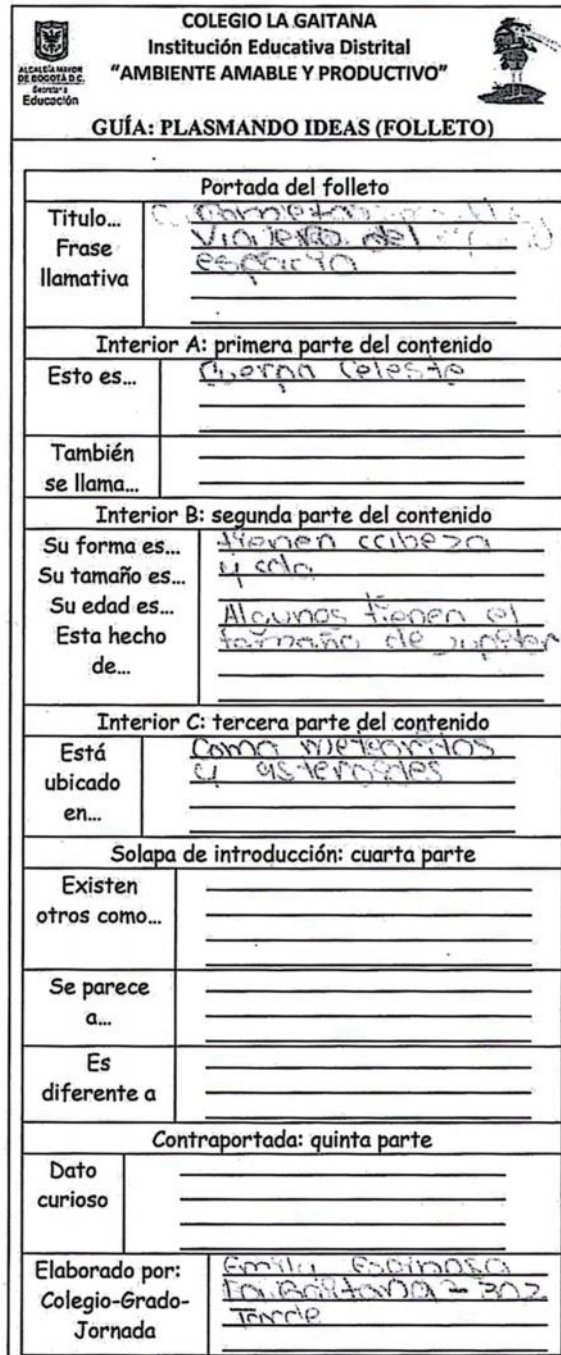 COLEGIO LA GAITANA
Institución Educativa Distrital
"AMBIENTE AMABLE Y PRODUCTIVO"
ALCALDÍA MAYOR
DE BOGOTÁ D.C.
Secretaría
Educación
GUÍA: PLASMANDO IDEAS (FOLLETO)
Portada del folleto
Titulo...
Frase
llamativa
Cometas
Viajeros del
espacio
Interior A: primera parte del contenido
Esto es...
Cuerpo Celeste
También
se llama...
Interior B: segunda parte del contenido
Su forma es...
Su tamaño es...
Su edad es...
Esta hecho
de...
tienen cabeza
y cola
Algunos tienen el
tamaño de jupiter
Interior C: tercera parte del contenido
Está
ubicado
en...
Como meteoritos
y asteroides
Solapa de introducción: cuarta parte
Existen
otros como...
Se parece
a...
Es
diferente a
Contraportada: quinta parte
Dato
curioso
Elaborado por:
Colegio-Grado-
Jornada
Emily Espinosa
La Gaitana - 302
Tarde